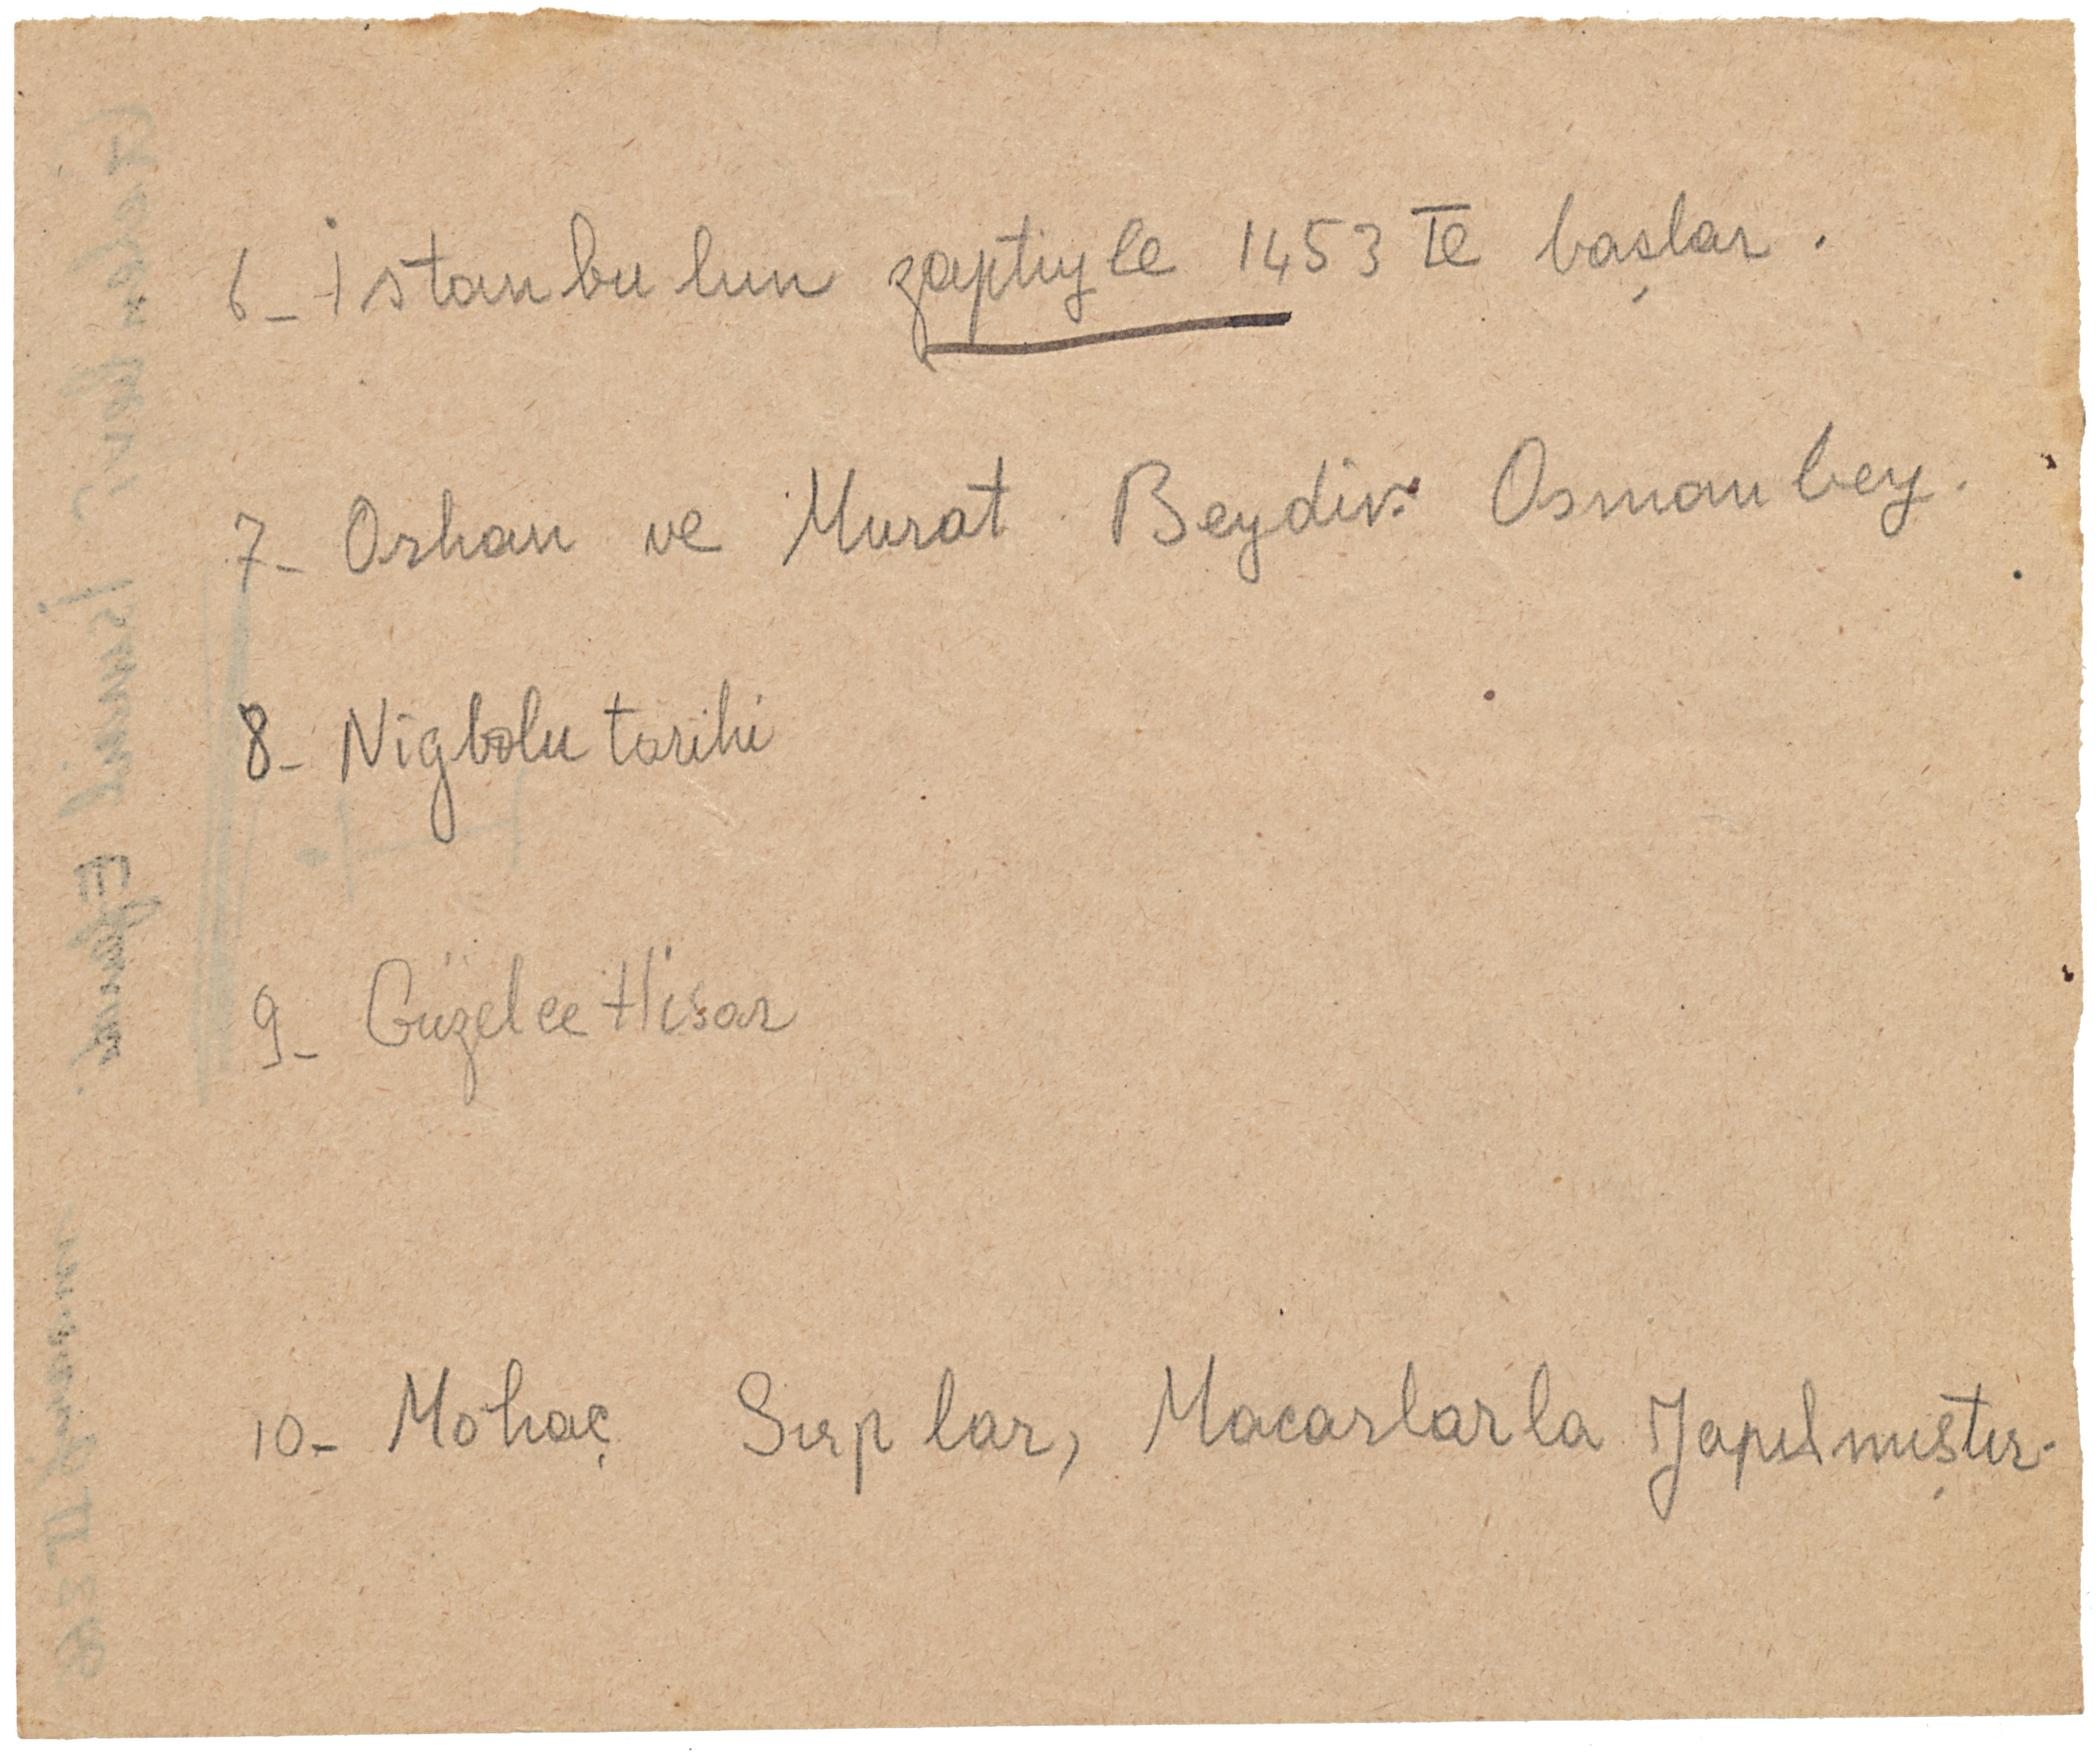 6- İstanbulun zaptiyle 1453 te başlar.
7- Orhan ve Murat Beydir. Osman bey.
8- Nigbolu tarihi
9- Güzelce Hisar
10- Mohaç Sırplar, Macarlarla Yapılmıştır.